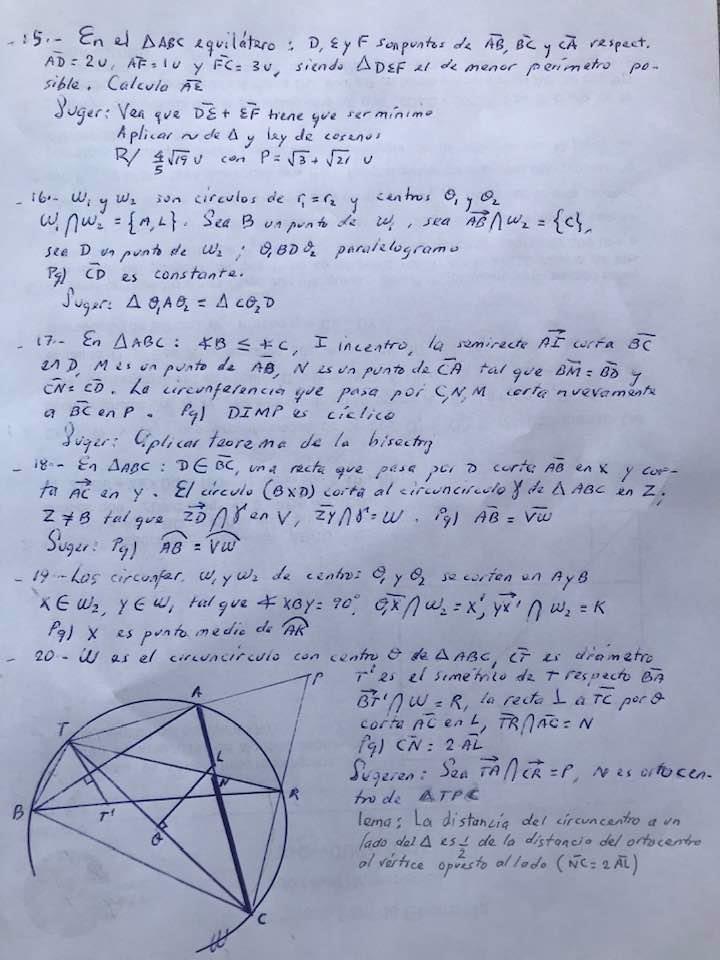 15.- En el ΔABC equilátero: D, E y F son puntos de AB, BC y CA respect.
AD = 2u, AF = 1u y FC = 3u, siendo ΔDEF el de menor perímetro po-
sible. Calcula AE
Suger: Vea que DE + EF tiene que ser mínimo
Aplicar ~ de Δ y ley de cosenos
R/ 4/5 √19 u con P = √3 + √21 u
16.- W₁ y W₂ son círculos de r₁ = r₂ y centros θ₁ y θ₂
W₁ ⋂ W₂ = {A, L}. Sea B un punto de W₁, sea AB ⋂ W₂ = {C},
sea D un punto de W₂; θ₁BDθ₂ paralelogramo
Pq) CD es constante.
Suger: Δ θ₁Aθ₂ = Δ Cθ₂D
17.- En ΔABC: ∢B ≤ ∢C, I incentro, la semirecta AI corta BC
en D, M es un punto de AB, N es un punto de CA tal que BM = BD y
CN = CD. La circunferencia que pasa por C, N, M corta nuevamente
a BC en P. Pq) DIMP es cíclico
Suger: Aplicar teorema de la bisectriz
18.- En ΔABC: D ∈ BC, una recta que pasa por D corta AB en X y cor-
ta AC en Y. El círculo (BXD) corta al circuncírculo γ de ΔABC en Z;
Z ≠ B tal que ZD ⋂ γ en V, ZY ⋂ γ = W. Pq) AB = VW
Suger: Pq) AB = VW
19.- Las circunfer. W₁ y W₂ de centros θ₁ y θ₂ se cortan en A y B
X ∈ W₂, Y ∈ W₁ tal que ∢ XBY = 90°, θ₁X ⋂ W₂ = X', YX' ⋂ W₂ = K
Pq) X es punto medio de AK
20.- W es el circuncírculo con centro θ de ΔABC, CT es diámetro
T' es el simétrico de T respecto BA
BT' ⋂ W = R, la recta ⊥ a TC por θ
corta AC en L, TR ⋂ AC = N
Pq) CN = 2·AL
Sugeren: Sea TA ⋂ CR = P, N es ortocen-
tro de ΔTPC
Lema: La distancia del circuncentro a un
lado del Δ es 1/2 de la distancia del ortocentro
al vértice opuesto al lado (NC = 2AL)
P
A
T
L
N
B
T'
R
θ
C
W